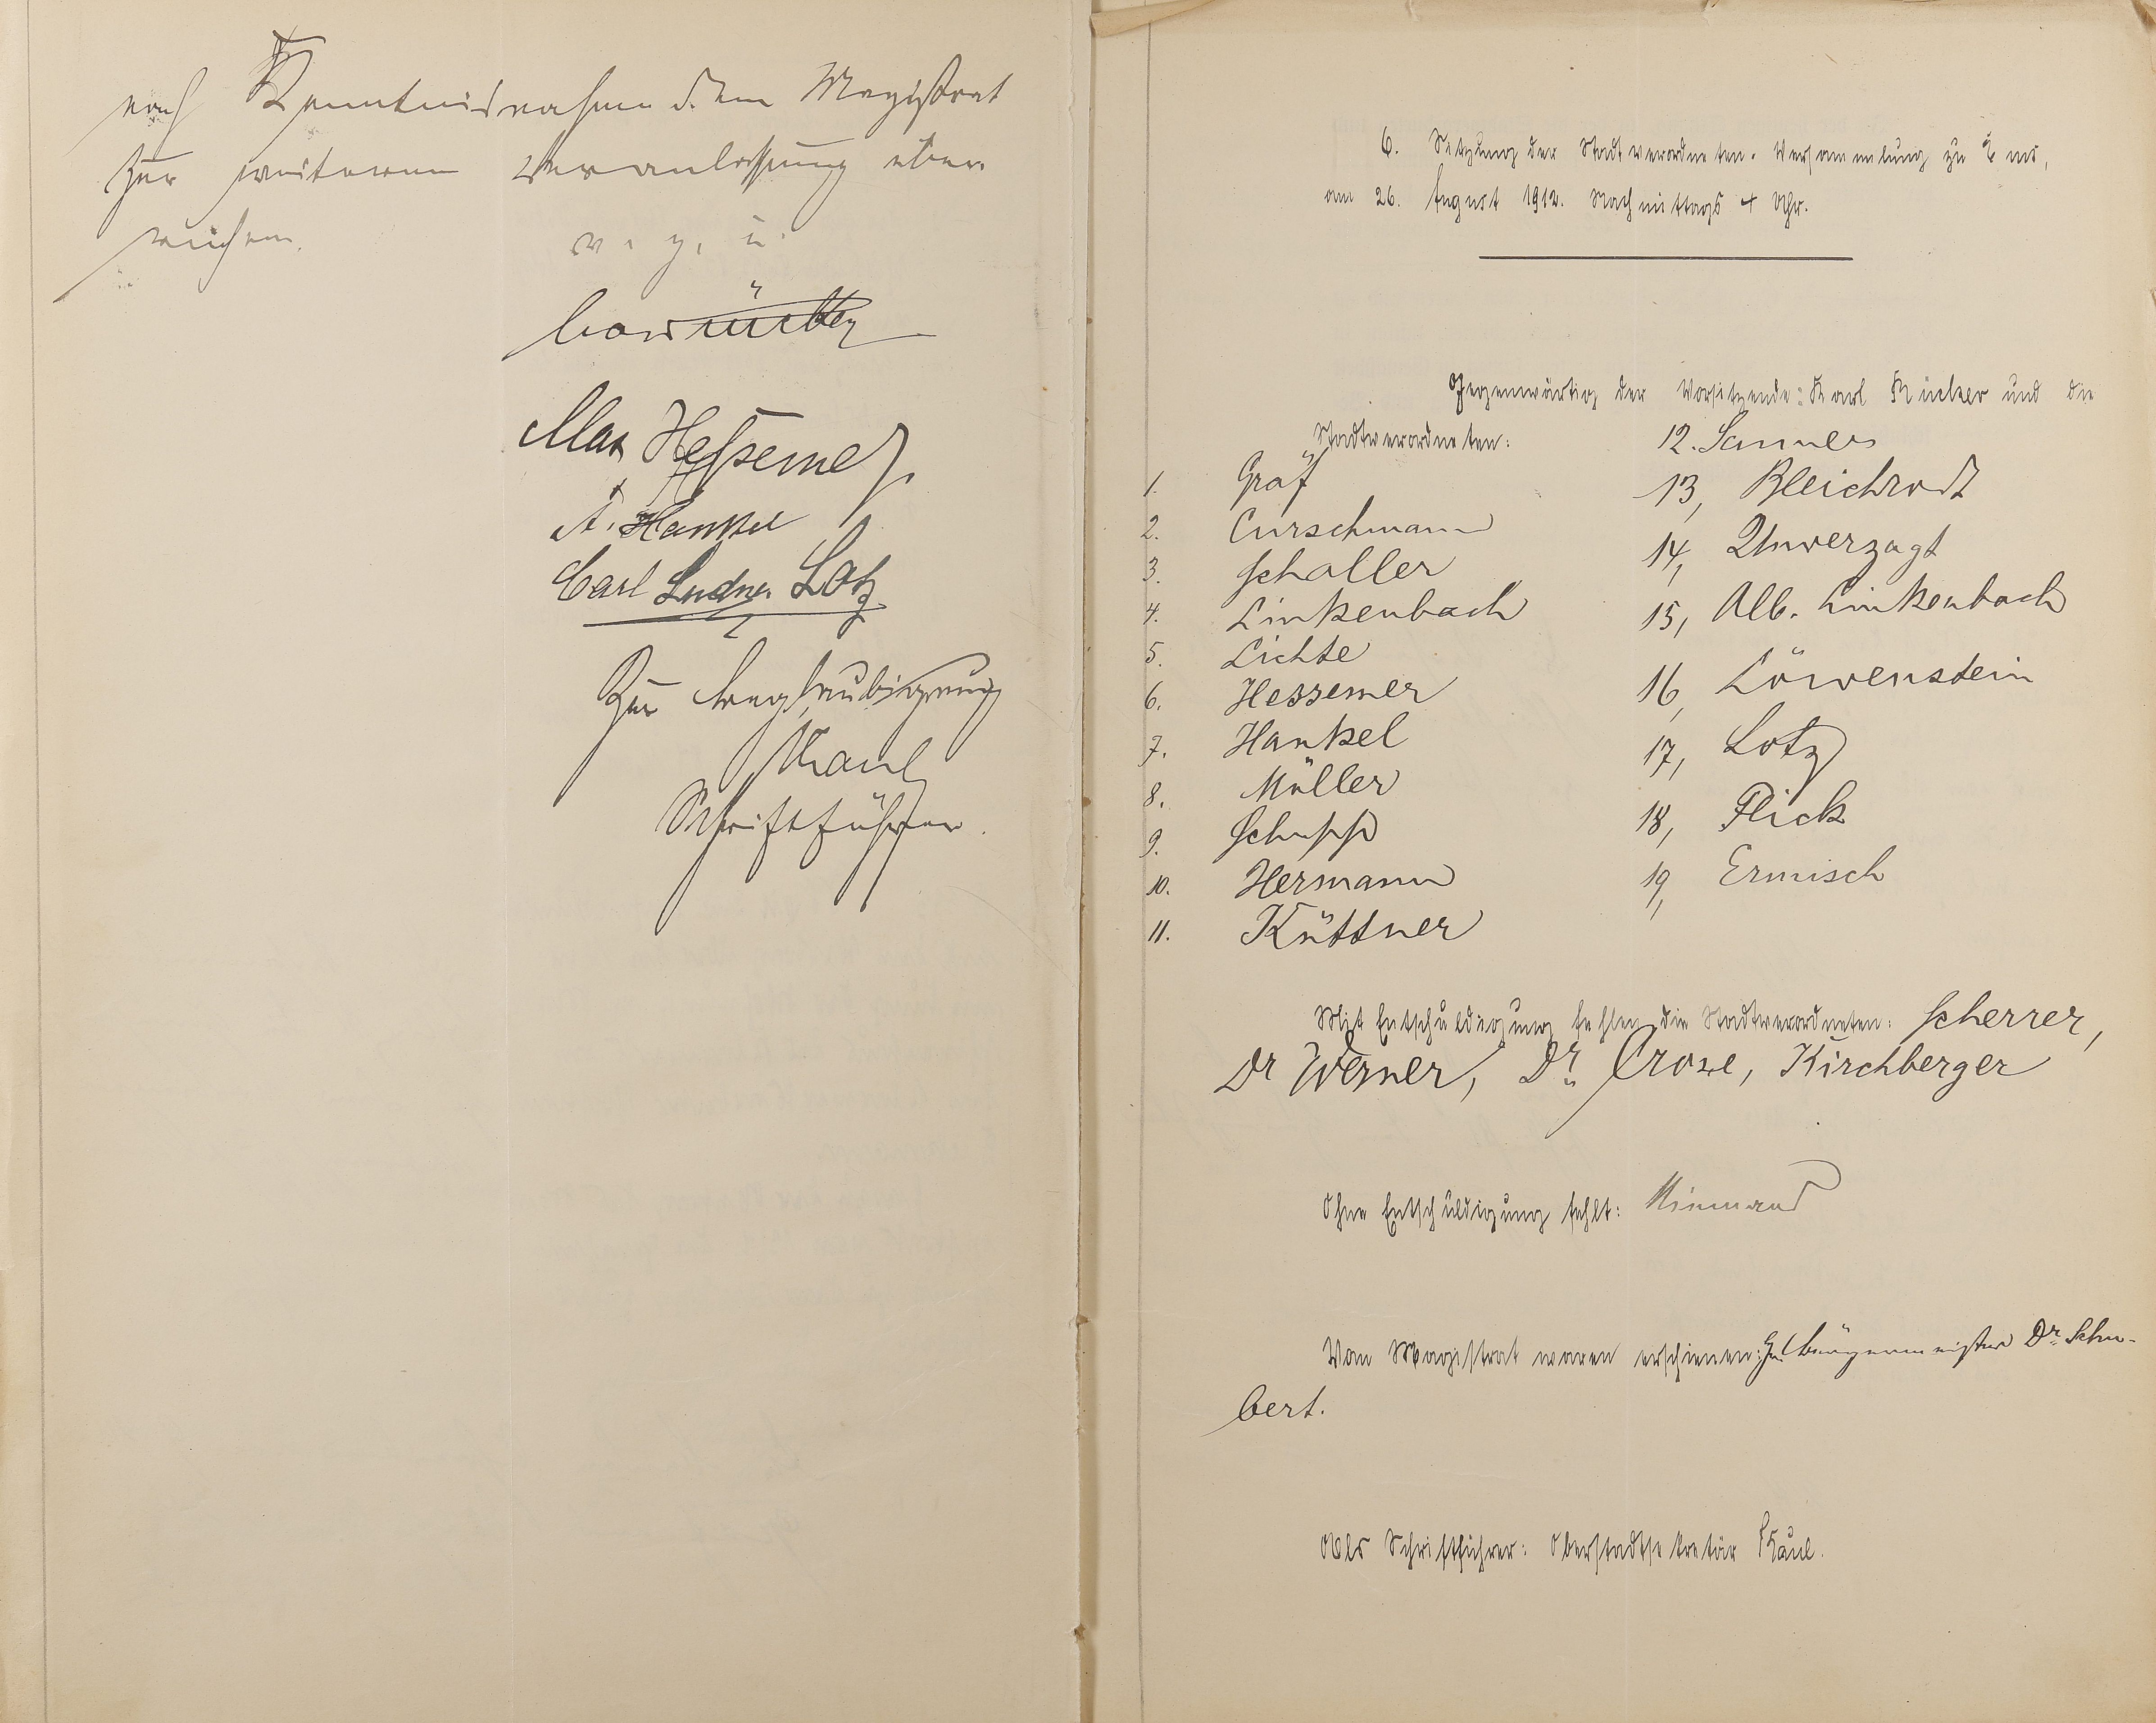 nach Kenntnisnahme dem Magistrat
zur weiteren Veranlassung über-
reichen.
v. g. u.
Max Hessemer
A. Hankel
Carl Ludw. Lotz
Zur Beglaubigung
Kaul
Schriftführer.
6. Sitzung der Stadtverordneten-Versammlung zu Ems,
am 26. August 1912. Nachmittags 4 Uhr.
Gegenwärtig der Vorsitzende: Karl Rücker und die
Stadtverordneten:
1. Gräf
2. Curschmann
3. Schaller
4. Linkenbach
5. Lichte
6. Hessemer
7. Hankel
8. Müller
9. Schupp
10. Hermann
11. Küttner
12. Sanner
13, Bleichrodt
14, Unverzagt
15, Alb. Linkenbach
16, Löwenstein
17, Lotz
18, Flick
19, Ermisch
Mit Entschuldigung fehlen die Stadtverordneten: Scherrer,
Dr Werner, Dr. Crone, Kirchberger
Ohne Entschuldigung fehlt: Niemand
Vom Magistrat waren erschienen: Bürgermeister Dr. Schu-
bert.
Als Schriftführer: Oberstadtsekretär Kaul.